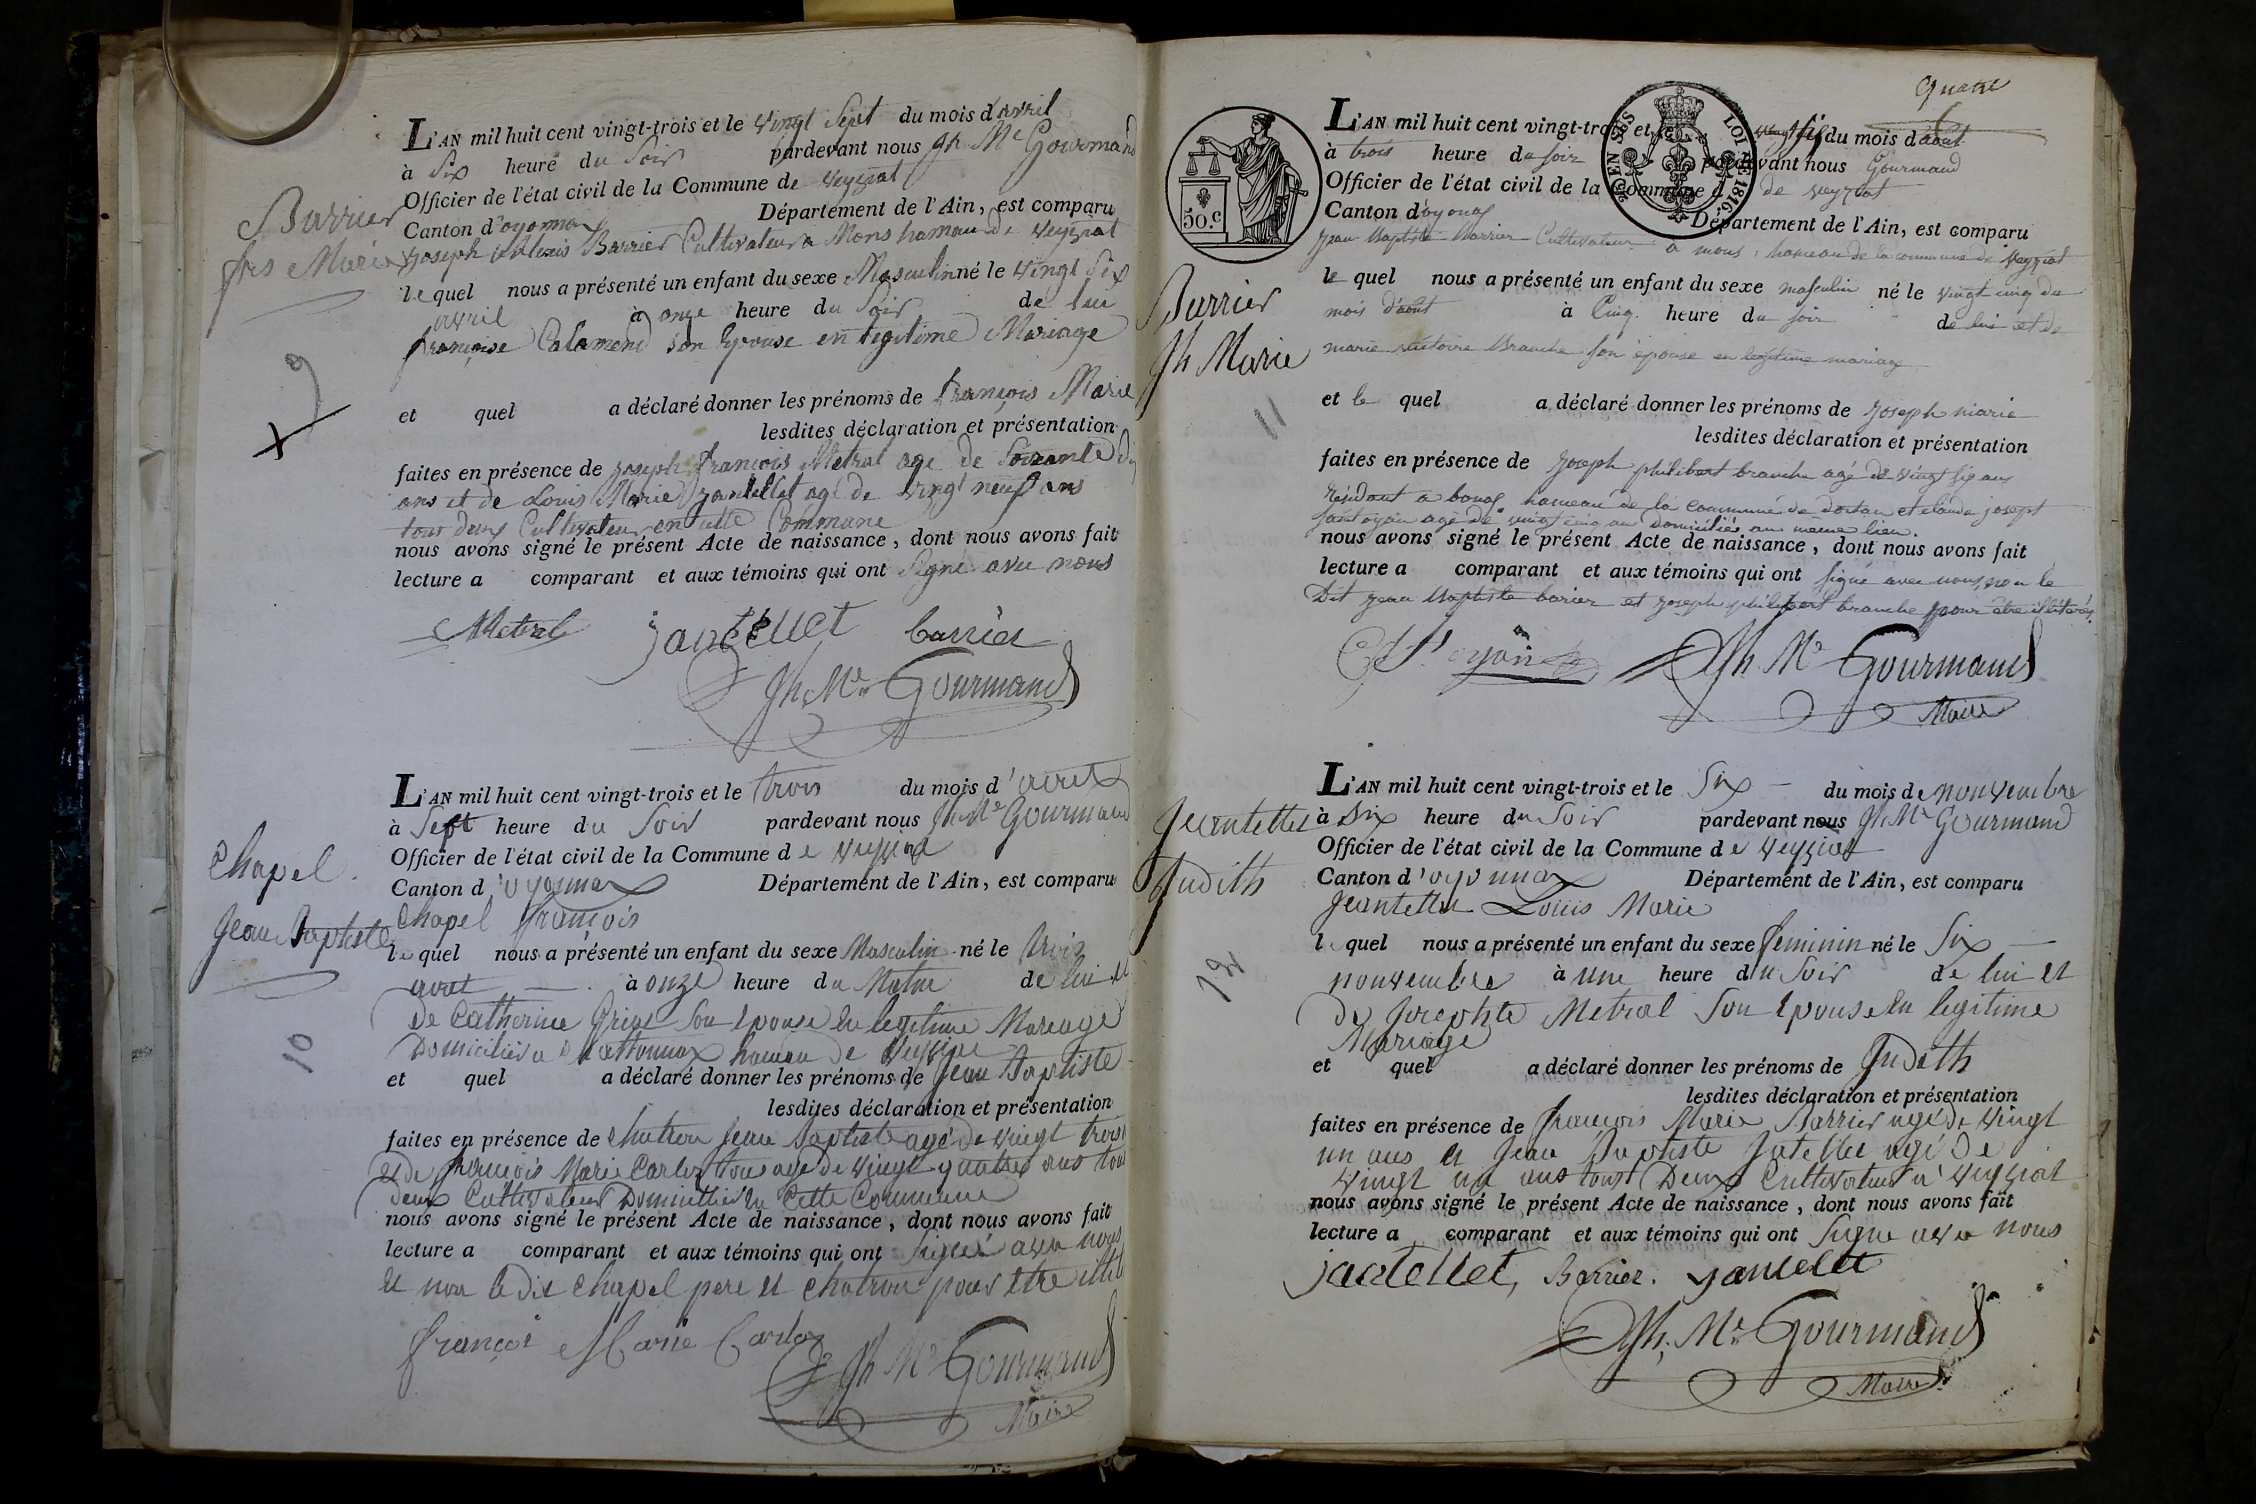 Barrier
frs Marie
9
L'AN mil huit cent vingt-trois et le vingt Sept du mois d'avril
à Six heure du Soir pardevant nous Jh Me Gourmand
Officier de l'état civil de la Commune de veyziat
Canton d'oyonnax Département de l'Ain, est comparu
joseph Barrier Cultivateur a Mons hameau de veyziat
lequel nous a présenté un enfant du sexe Masculin né le vingt Six
avril à onze heure du Soir de lui
françoise son Epouse en legitime Mariage
et quel a déclaré donner les prénoms de françois Marie
lesdites déclaration et présentation
faites en présence de joseph françois Metral age de Soixante
ans et de Louis Marie jantellet agé de vingt neuf ans
tous deux Cultivateur en cette Commune
nous avons signé le présent Acte de naissance, dont nous avons fait
lecture a comparant et aux témoins qui ont Signé avec nous
Metral jantellet barrier
Jh Me Gourmand
Chapel
Jean Baptiste
10
L'AN mil huit cent vingt-trois et le trois du mois d'aout
à Sept heure du Soir pardevant nous Jh Me Gourmand
Officier de l'état civil de la Commune de veyziat
Canton d'oyonnax Département de l'Ain, est comparu
Chapel françois
lequel nous a présenté un enfant du sexe Masculin né le trois
aout à onze heure du Matin de lui et
de Catherine Son Epouse en legitime Mariage
Domiciliés a hameau de veyziat
et quel a déclaré donner les prénoms de Jean Baptiste
lesdites déclaration et présentation
faites en présence de Chatron Jean Baptiste agé de vingt trois
et de françois Marie Carlod agé de vingt quatre ans tous
deux Cultivateurs Domiciliés en Cette Commune
nous avons signé le présent Acte de naissance, dont nous avons fait
lecture a comparant et aux témoins qui ont Signé avec nous
et non le dit Chapel pere et Chatron pour être
françoi Marie
Jh Me Gourmand
Maire
quatre
50.c
EN SUS
LOI DE 1816.
Barrier
Jh Marie
11
L'AN mil huit cent vingt-trois et le vingt six du mois d'aout
à trois heure du soir pardevant nous Gourmand
Officier de l'état civil de la Commune d de veyziat
Canton d'oyonax Département de l'Ain, est comparu
jean Baptiste Barrier Cultivateur a mons, hameau de la commune de veyziat
le quel nous a présenté un enfant du sexe masculin né le vingt cinq du
mois d'aout à Cinq heure du soir de lui et de
marie victoire Branche son épouse en legitime mariage
et le quel a déclaré donner les prénoms de joseph marie
lesdites déclaration et présentation
faites en présence de joseph philibert branche agé de vingt six ans
résidant a bonaz hameau de la commune de dortan et claude joseph
agé de vingt cinq ans domiciliés au même lieu.
nous avons signé le présent Acte de naissance, dont nous avons fait
lecture a comparant et aux témoins qui ont signé avec nous, non le
Dit jean Baptiste barier et joseph philibert branche pour être illitérés.
Jh Me Gourmand
Maire
Jeantellet
Judith
12
L'AN mil huit cent vingt-trois et le Six du mois de nouvembre
à Six heure du Soir pardevant nous Jh Me Gourmand
Officier de l'état civil de la Commune de veyziat
Canton d'oyonnax Département de l'Ain, est comparu
Jeantellet Louis Marie
le quel nous a présenté un enfant du sexe feminin né le Six
nouvembre à une heure du Soir de lui et
de Josephte Metral Son Epouse en legitime
Mariage
et quel a déclaré donner les prénoms de Judith
lesdites déclaration et présentation
faites en présence de françois Marie Barrier agé de vingt
un ans et Jean Baptiste agé de
vingt un ans tous Deux Cultivateur a veyziat
nous avons signé le présent Acte de naissance, dont nous avons fait
lecture a comparant et aux témoins qui ont Signe avec nous
jantellet, Barrier. jantelet
Jh. Me Gourmand
Maire